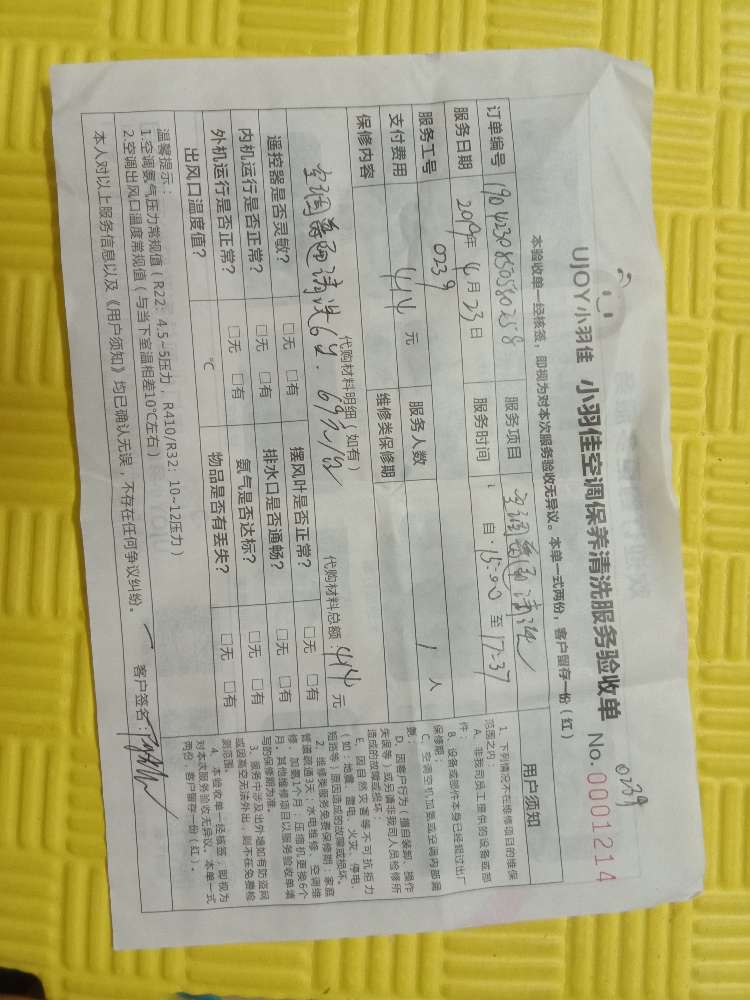 UJOY小羽佳 小羽佳空调保养清洗服务验收单 No. 0001214
0239
本验收单一经核签，即视为对本次服务验收无异议。本单一式两份，客户留存一份（红）
订单编号 904230850580258 服务项目 空调普通清洗
服务日期 2019年 4月 23日 服务时间 自 15:00 至 17:37
服务工号 0239 服务人数 1 人
支付费用 414 元 维修类保修期
保修内容
代购材料明细（如有）
空调普通清洗6台. 69元/台 代购材料总额：414 元
遥控器是否灵敏？ □无 □有 摆风叶是否正常？ □无 □有
内机运行是否正常？ □无 □有 排水口是否通畅？ □无 □有
外机运行是否正常？ □无 □有 氨气是否达标？ □无 □有
出风口温度值？ ℃ 物品是否有丢失？ □无 □有
温馨提示：
1.空调氨气压力常规值（R22：4.5~5压力，R410/R32：10~12压力）
2.空调出风口温度常规值（与当下室温相差10℃左右）
本人对以上服务信息以及《用户须知》均已确认无误，不存在任何争议纠纷。 客户签名：
用户须知
1、下列情况不在维修项目的维保
范围之内：
A、非我司员工提供的设备或部
件；
B、设备或部件本身已经超过出厂
保修期；
C、空调空机加氨或空调内部漏
氨；
D、因客户行为（擅自装卸、操作
失误等）或另请非我司人员检修所
造成的故障或损坏；
E、因自然灾害等不可抗拒力
（如：地震、雷电、火灾、停电、
短路等）原因造成的故障或损坏。
2、维修类服务免费保修期：家庭
管道疏通3天，水电维修、空调维
修、加氨1个月；压缩机更换6个
月，其他维修项目以服务验收单填
写的保修期为准。
3、服务中涉及出外墙如有防盗网
或因高空无法外出，则不在免费检
测范围。
4、本验收单一经核签，即视为
对本次服务验收无异议。本单一式
两份，客户留存一份（红）。